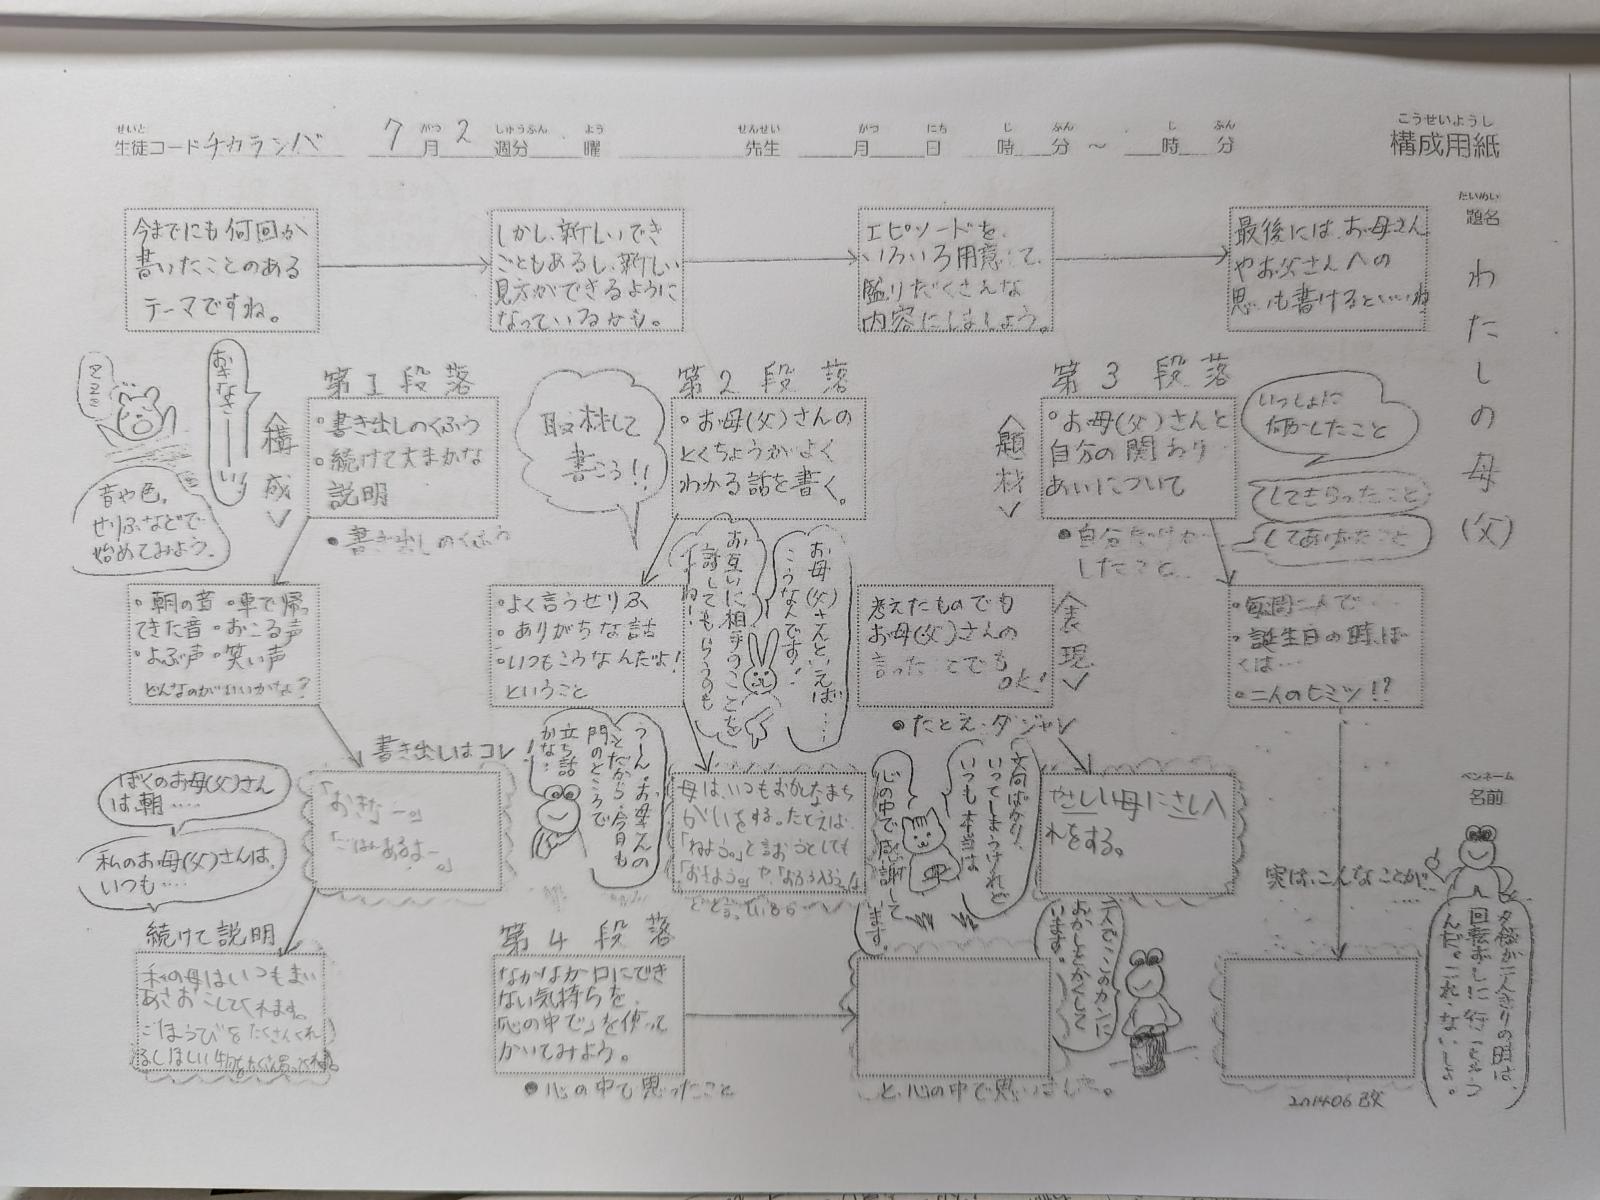 せいと
生徒コードチカランバ
7月2週分 曜
がつ
しゅうぶん
よう
せんせい
先生
がつ にち じ ふん じ ふん
月 日 時 分 ～ 時 分
こうせいようし
構成用紙
だいめい
題名
わたしの母(父)
今までにも何回か
書いたことのある
テーマですね。
しかし、新しいでき
ごともあるし、新しい
見方ができるように
なっているかも。
エピソードを、
いろいろ用意して、
盛りだくさんな
内容にしましょう。
最後には、お母さん
やお父さんへの
思いも書けるといいね
おきなさーーい
第1段落
<構成>
・書き出しのくふう
・続けて大まかな
説明
●書き出しのくふう
音や色、
せりふなどで
始めてみよう。
取材して
書こう!!
第2段落
・お母(父)さんの
とくちょうがよく
わかる話を書く。
<題材>
第3段落
・お母(父)さんと
自分の関わり
あいについて
いっしょに
何かしたこと
してもらったこと
してあげたこと
●自分だけが
したこと
・朝の音・車で帰っ
てきた音・おこる声
・よぶ声・笑い声
どんなのがいいかな?
・よく言うせりふ
・ありがちな話
・いつもこうなんだよ!
ということ
お互いに相手のことを
話してもらうのも
いいね!
お母(父)さんといえば……
こうなんです!
考えたものでも
お母(父)さんの
言ったことでも
OK!
<表現>
●たとえ・ダジャレ
・毎週二人で…
・誕生日の時、ぼ
くは…
・二人のヒミツ!?
書き出しはコレ!
ぼくのお母(父)さん
は、朝……
私のお母(父)さんは、
いつも……
「おきなー。」
「ごはんあるよー。」
うーん。お母さんの
ことだから、今日も
門のところで
立ち話
かな?
母は、いつもおかしなまち
がいをする。たとえば
「ねよう。」と言おうとしても
文句ばかり
いってしまうけれど
いつも本当は
心の中で感謝して
います。
やさしい母にさし入
れをする。
実は、こんなことが…
ペンネーム
名前
夕飯が二人きりの時は、
回転ずしに行っちゃう
んだ。これ、ないしょ。
続けて説明
私の母はいつもまい
あさおこしてくれます。
ごほうびをたくさんくれ
第4段落
なかなか口にでき
ない気持ちを、
「心の中で」を使って
かいてみよう。
●心の中で思ったこと
二人でこのカンに
おかしをかくして
います。
と、心の中で思いました。
201406改